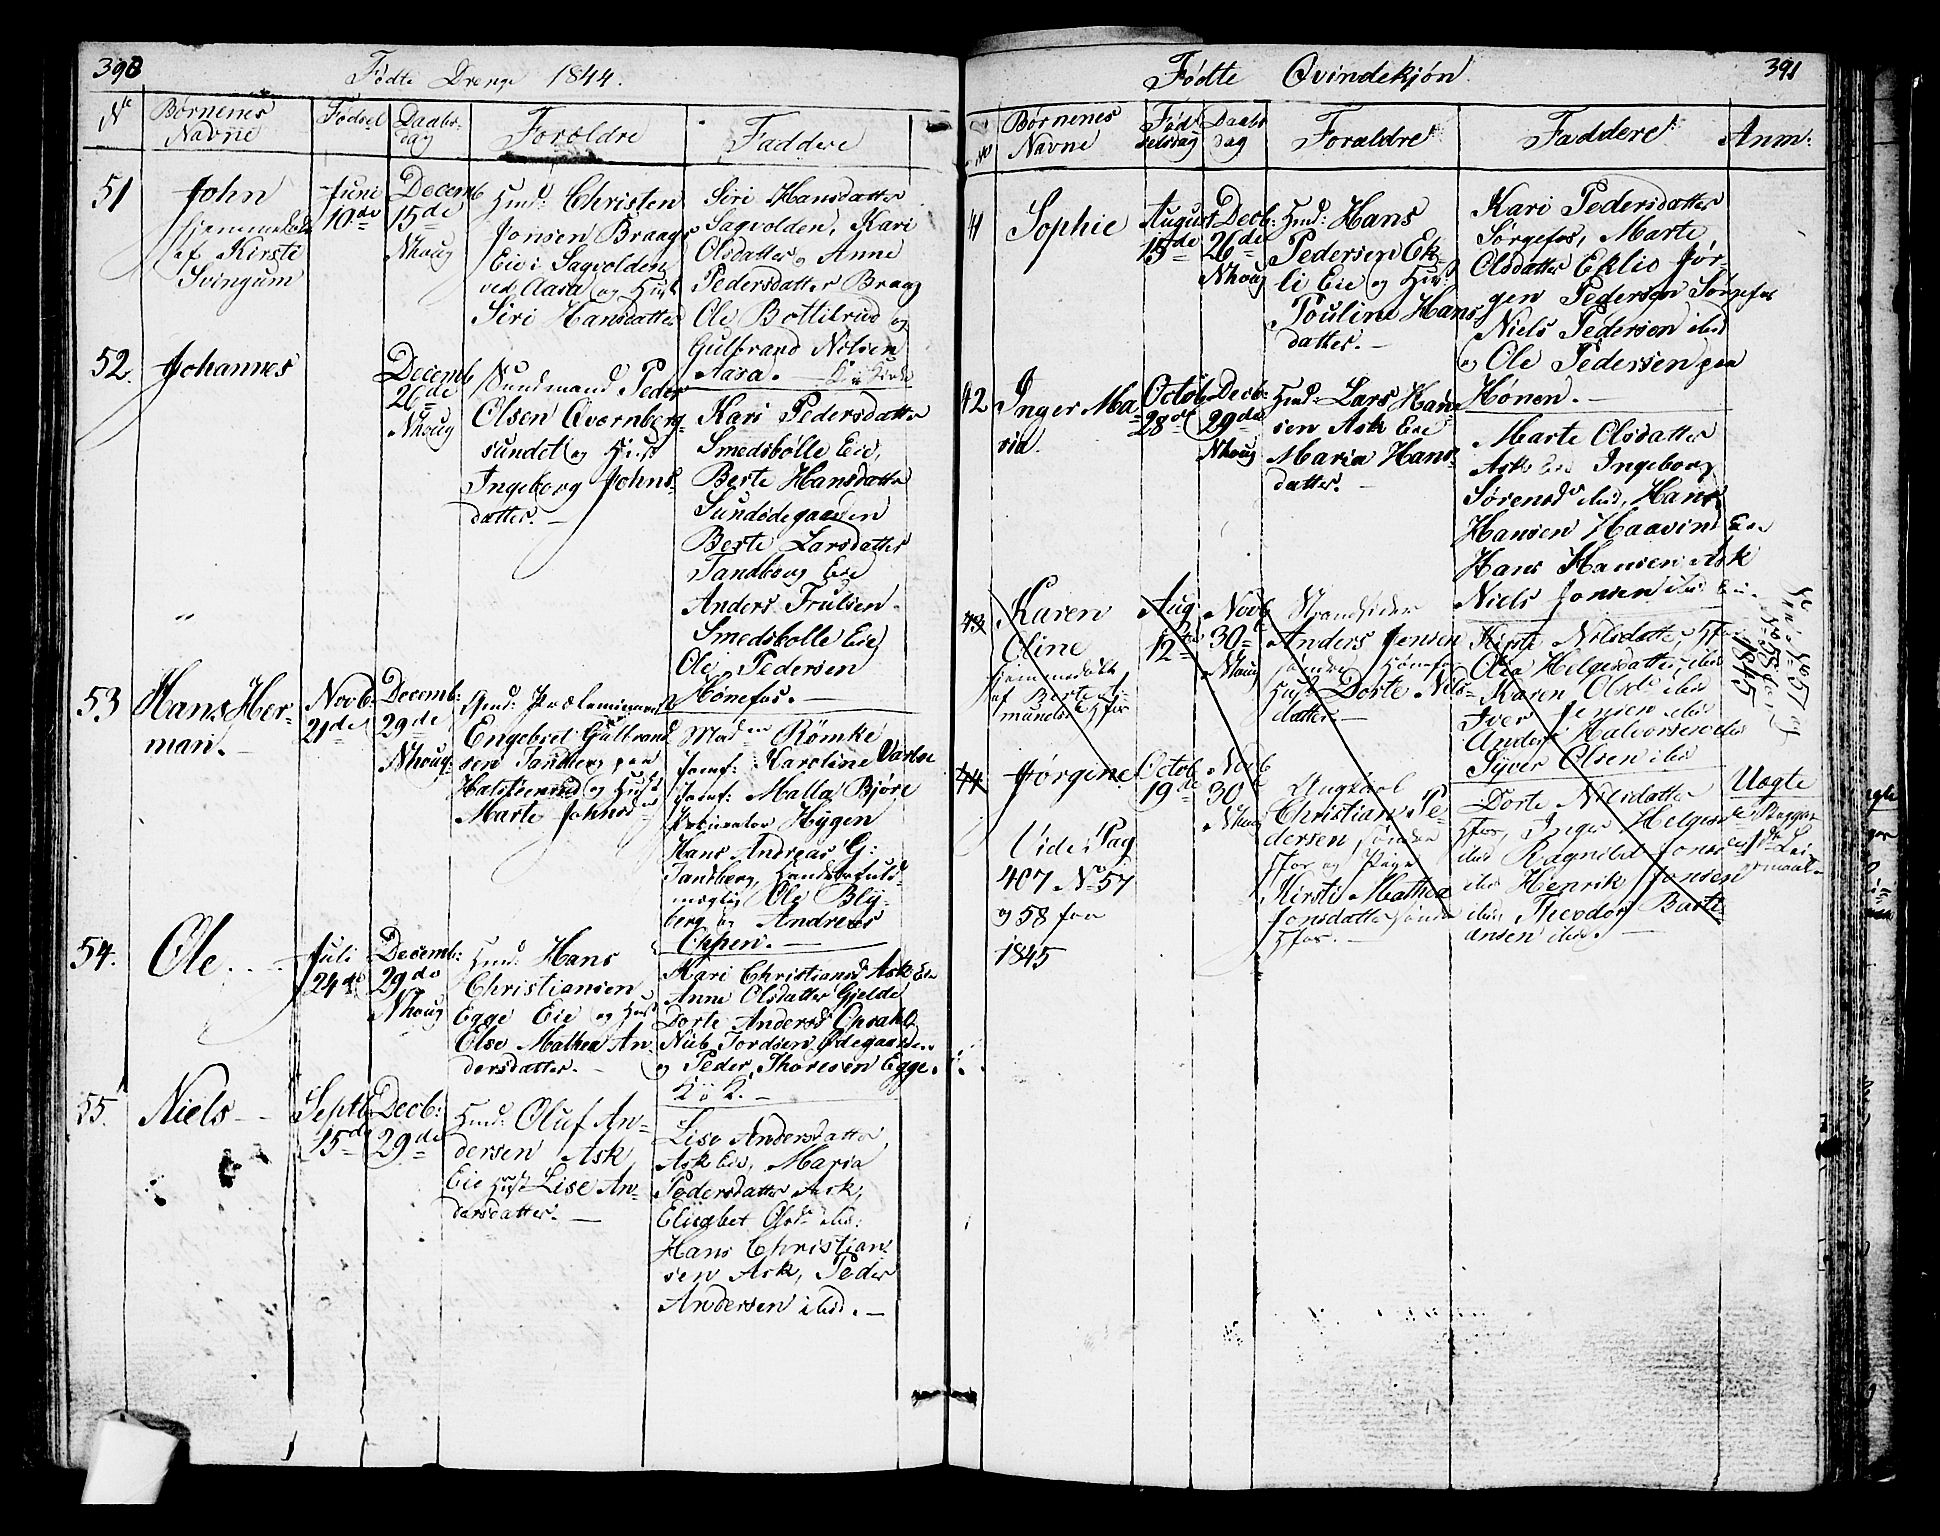 390
Födte Drenge 1844.
No
Børnenes
Navne
Fødsel
Daabs-
dag
Forældre
Faddere
51
John
hjemmedøbt
af Kirsti
Svingum
Juni
10de
Decemb
15de
Nhoug
Hmd: Christen
Jonsen Braag
Eie i Sagvolden
ved Aasa og Hust
Siri Hansdatter
Siri Hansdatter
Sagvolden, Kari
Olsdatter, Anne
Pedersdatter Braag
Ole Bottilrud og
Gulbrand Nilsen
Aasa. —
52.
Johannes
Decemb
26de
Nhoug
Sundmand Peder
Olsen Qvernberg-
sundet og Hust
Ingeborg Johns-
datter. —
Kari Pedersdatter
Smedsbølle Eie,
Berte Hansdatter
Sundødegaarden
Berte Larsdatter
Tandberg Eie
Anders Trulsen
Smedsbølle Eie
Ole Pedersen
Hønefos. —
53
Hans Her-
man. —
Novb:
21de
Decemb:
29de
Nhoug.
Engebret Gulbrand
sen Tandberg paa
Halstenrud og Hust
Marte Johnsd
Mad Römke
Jomf: Karoline
Jomf: Malla Björe
Procurator Hygen
Hans Andreas G:
Tandberg, Handelsfuld-
mægtig Ole Bly-
berg og Andreas
Oppen. —
54.
Ole.
Juli
24de
Decemb:
29de
Nhoug
Hmd: Hans
Christiansen
Egge Eie og Hust
Else Mathea An-
dersdatter. —
Kari Christiansd Ask Eie
Anne Olsdatter Gjelde
Dorte Andersd Opsahl
Niels Tordsen Ødegaarden
og Peder Thoresen Egge.
K i K. —
55.
Niels —
Septb:
15de
Decb:
29de
Hmd: Oluf An-
dersen Ask
Eie Hust Lise An-
dersdatter. —
Lise Andersdatter
Ask Eie, Maria
Pedersdatter Ask,
Elisabet Olsd ibid:
Hans Christian
sen Ask, Peder
Andersen ibid. —
391
Födte Qvindekjön.
No
Børnenes
Navne
Föd-
selsdag
Daabs
dag
Forældre
Faddere
Anm:
41
Sophie
August
15de
Decb:
26de
Nhoug
Hmd: Hans
Pedersen Ek-
li Eie og Hust
Pouline Hans
datter. —
Kari Pedersdatter
Sörgefos, Marte
Olsdatter Eklie Jör-
gen Pedersen Sörgefos
Niels Pedersen ibid
og Ole Pedersen paa
Hönen. —
42
Inger Ma-
ria.
Octob
28de
Decb:
29de
Nhoug
Hmd: Lars Han
sen Ask Eie
Maria Hans-
datter. —
Marte Olsdatter
Ask Eie Ingeborg
Sørensd ibid, Hans
Hansen Haavind Eie
Hans Hansen Ask
Niels Jonsen ibid Eie
43
Karen
Oline
hjemmedøbt
af Berte
Hfos
Aug
12te
Novb
30te
Nhoug
Strandsider
Anders Jensen
söndre Hönefos
Hust Dorte Nils-
datter. —
Kirste Nilsdatter Hfos
Olea Helgesdatter ibid
Karen Olsd ibid
Iver Jensen ibid
Anders Halvorsen ibid
Syver Olsen ibid
1845
44
Jørgine
Octob
19de
Novb
30te
Nhoug
Ungkarl
Christian Pe-
dersen söndre
Hfos og Pige
Kirsti Mathea
Jonsdatter söndre
Hfos. —
Dorte Nilsdatter
Hfos, Inger Helgesd
ibid Ragnild Jonsd
ibid Henrik Jonsen
ibid Theodor Barti-
ansen ibid. —
Uægte
Begges
1ste Lei-
ermaal
Vide Pag
407 No 57
og 58 for
1845